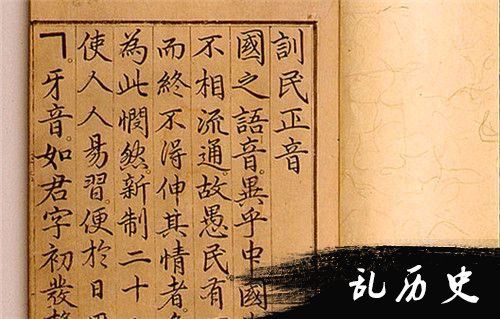 訓民正音
國之語音。異乎中國
不相流通。故愚民有
而終不得伸其情者。
為此憫然。新制二十
使人人易習。便於日
ㄱ。牙音。如君字初發
乱历史